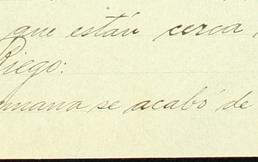 que están cerca
Riego:
mana se acabó de